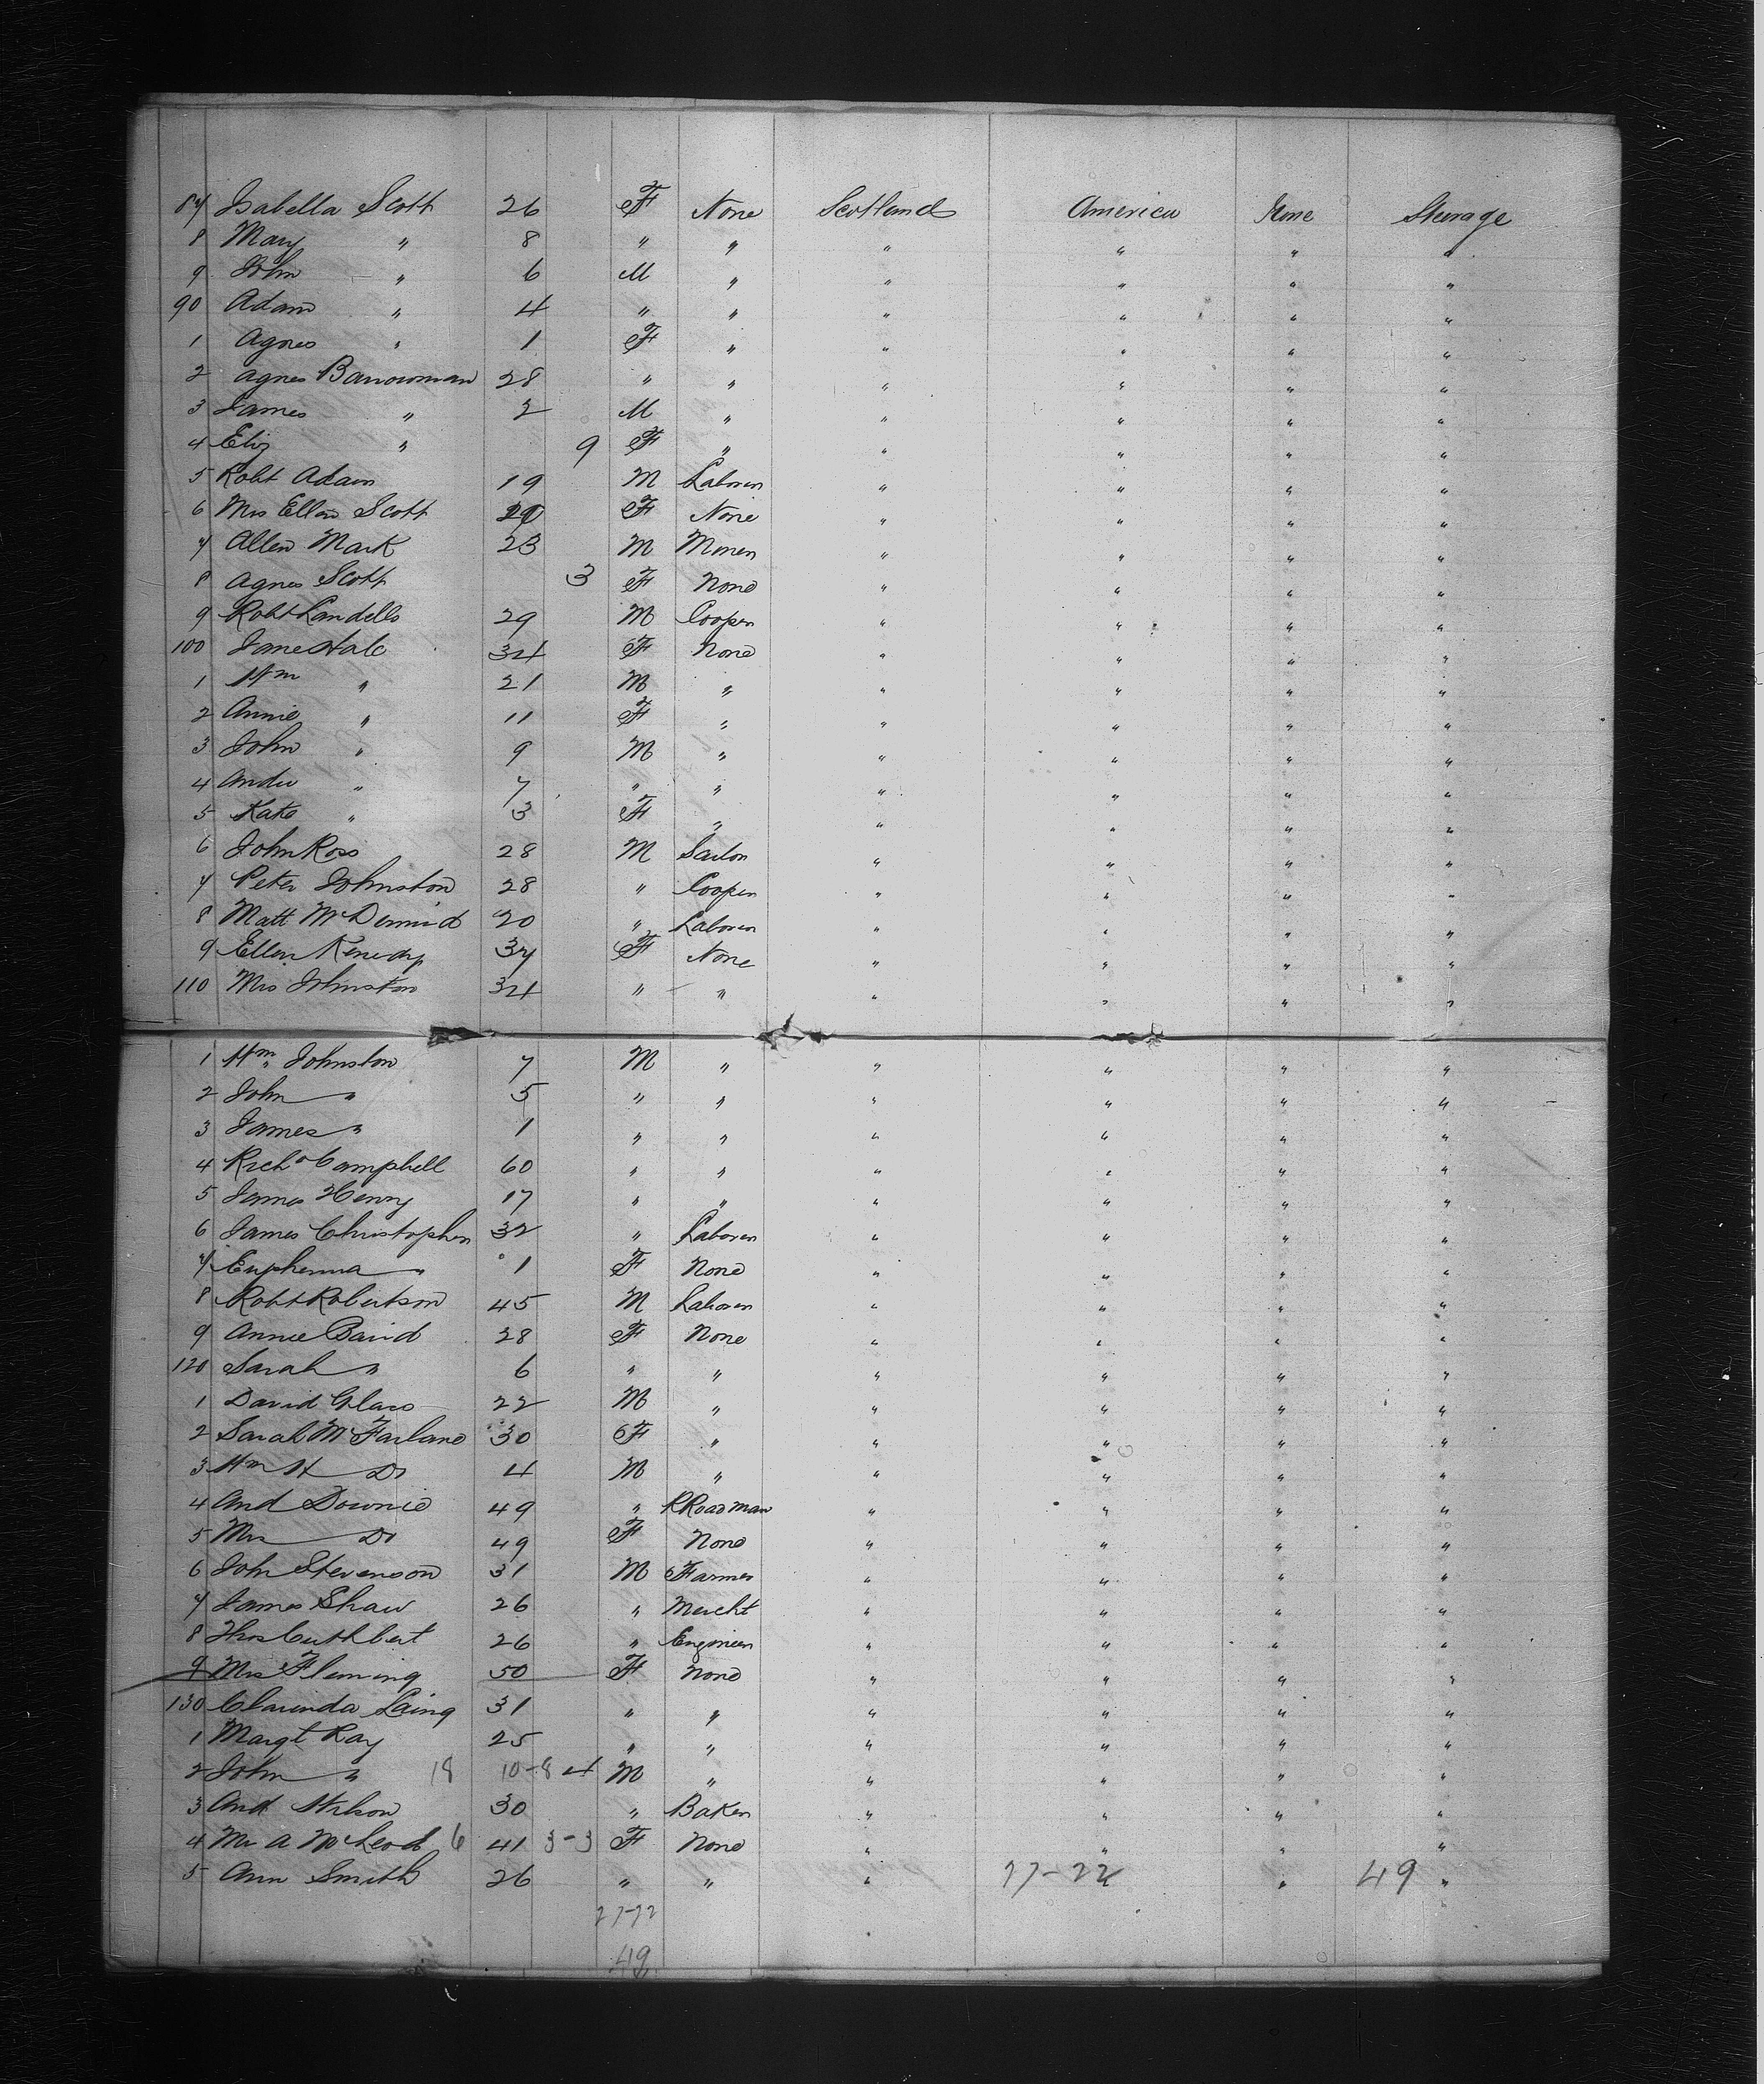 87 Isabella Scott 26 F None Scotland America None Steerage
8 Mary " 8 " " " " " "
9 John " 6 M " " " " "
90 Adam " 4 " " " " " "
1 Agnes " 1 F " " " " "
2 Agnes Barrowman 28 " " " " " "
3 James " 2 M " " " " "
4 Eliz " 9 F " " " " "
5 Robt Adam 19 M Laborer " " " "
6 Mrs Ellen Scott F None " " " "
7 Allen Mark 23 M Miner " " " "
8 Agnes Scott 3 F None " " " "
9 Robt Landells 29 M Cooper " " " "
100 Jane Hale 34 F None " " " "
1 Wm " 21 M " " " " "
2 Annie " 11 F " " " " "
3 John " 9 M " " " " "
4 Andw " 7 " " " " " "
5 Kate " 3 F " " " " "
6 John Ross 28 M Sailor " " " "
7 Peter Johnston 28 " Cooper " " " "
8 Matt McDermid 20 " Laborer " " " "
9 Ellen Kenedy 37 F None " " " "
110 Mrs Johnston 34 " " " " " "
1 Wm Johnston 7 M " " " " "
2 John " 5 " " " " " "
3 James " 1 " " " " " "
4 Richd Campbell 60 " " " " " "
5 James Henry 17 " " " " " "
6 James Christopher 32 " Laborer " " " "
7 Euphemia " 1 F None " " " "
8 Robt Robertson 45 M Laborer " " " "
9 Annie Baird 28 F None " " " "
120 Sarah " 6 " " " " " "
1 David Glass 22 M " " " " "
2 Sarah McFarlane 30 F " " " " "
3 Wm H Do 4 M " " " " "
4 And Downie 49 " RRoadman " " " "
5 Mrs Do 49 F None " " " "
6 John Stevenson 31 M Farmer " " " "
7 James Shaw 26 " Mercht " " " "
8 Thos Cuthbert 26 " Engineer " " " "
9 Mrs Fleming 50 F None " " " "
130 Clarinda Laing 31 " " " " " "
1 Margt Ray 25 " " " " " "
2 John " 18 10-8 4 M " " " " "
3 And Wilson 30 " Baker " " " "
4 Mr A McLeod 6 41 3-3 F None " " " "
5 Ann Smith 26 " " " 27-22 " 49 "
27-22
49